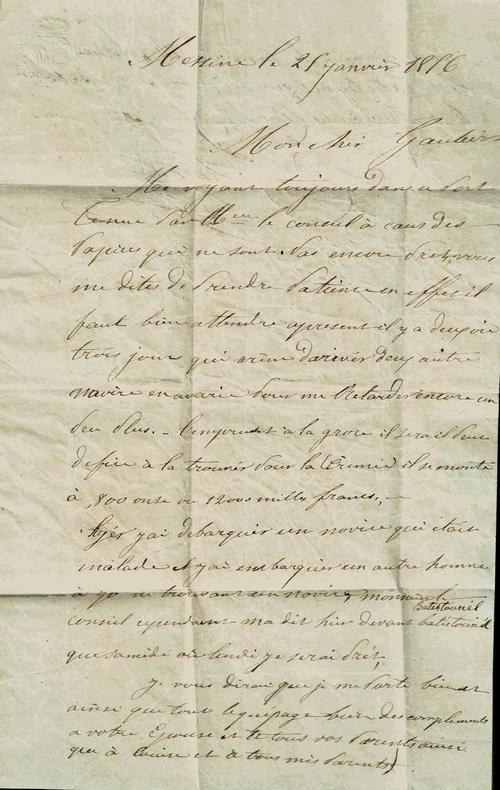 Messine le 25 janvier 1856
Mon cher Gautier
Me voyant toujours dans ce port
tenue par Mr le consul à caus des
papiers qui ne sont pas encore prêt, vous
me dites de prendre patience en effet il
faut bien attendre apresent il y a deux ou
trois jours qui vien d'arivér deux autre
navire en avarie pour me retarder encore un
peu plus. - l'emprunt a la grose il serai peu
dificile à la trouver pour la Crimié il se monte
à 800 onse ou 12000 mille francs, -
hyér j'ai debarquér un novice qui était
malade et j'ai embarquér un autre homme
à 90 ne trouvant un novice, monsieur le
Batistounil
consul cependant ma dit hier devant batistounil
que samedi ou lundi je serai prét,
Je vous dirai que je me porte bien et
ainsi que tout lequipage bien des compliments
a votre Epouse et de tous vos parents ainsi
qu'à Louise et à tous mes parents